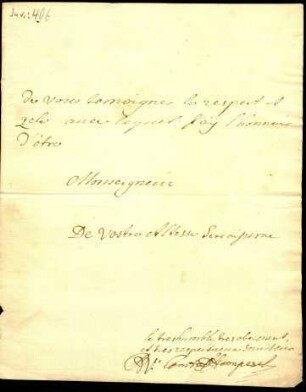 De vous temoigner le respect et
zele avec lequel j'ay l'honneur
d'être
Monseigneur
De Vostre Altesse Serenissime
le tres humble tres obeissant
et tres respectueux Serviteur